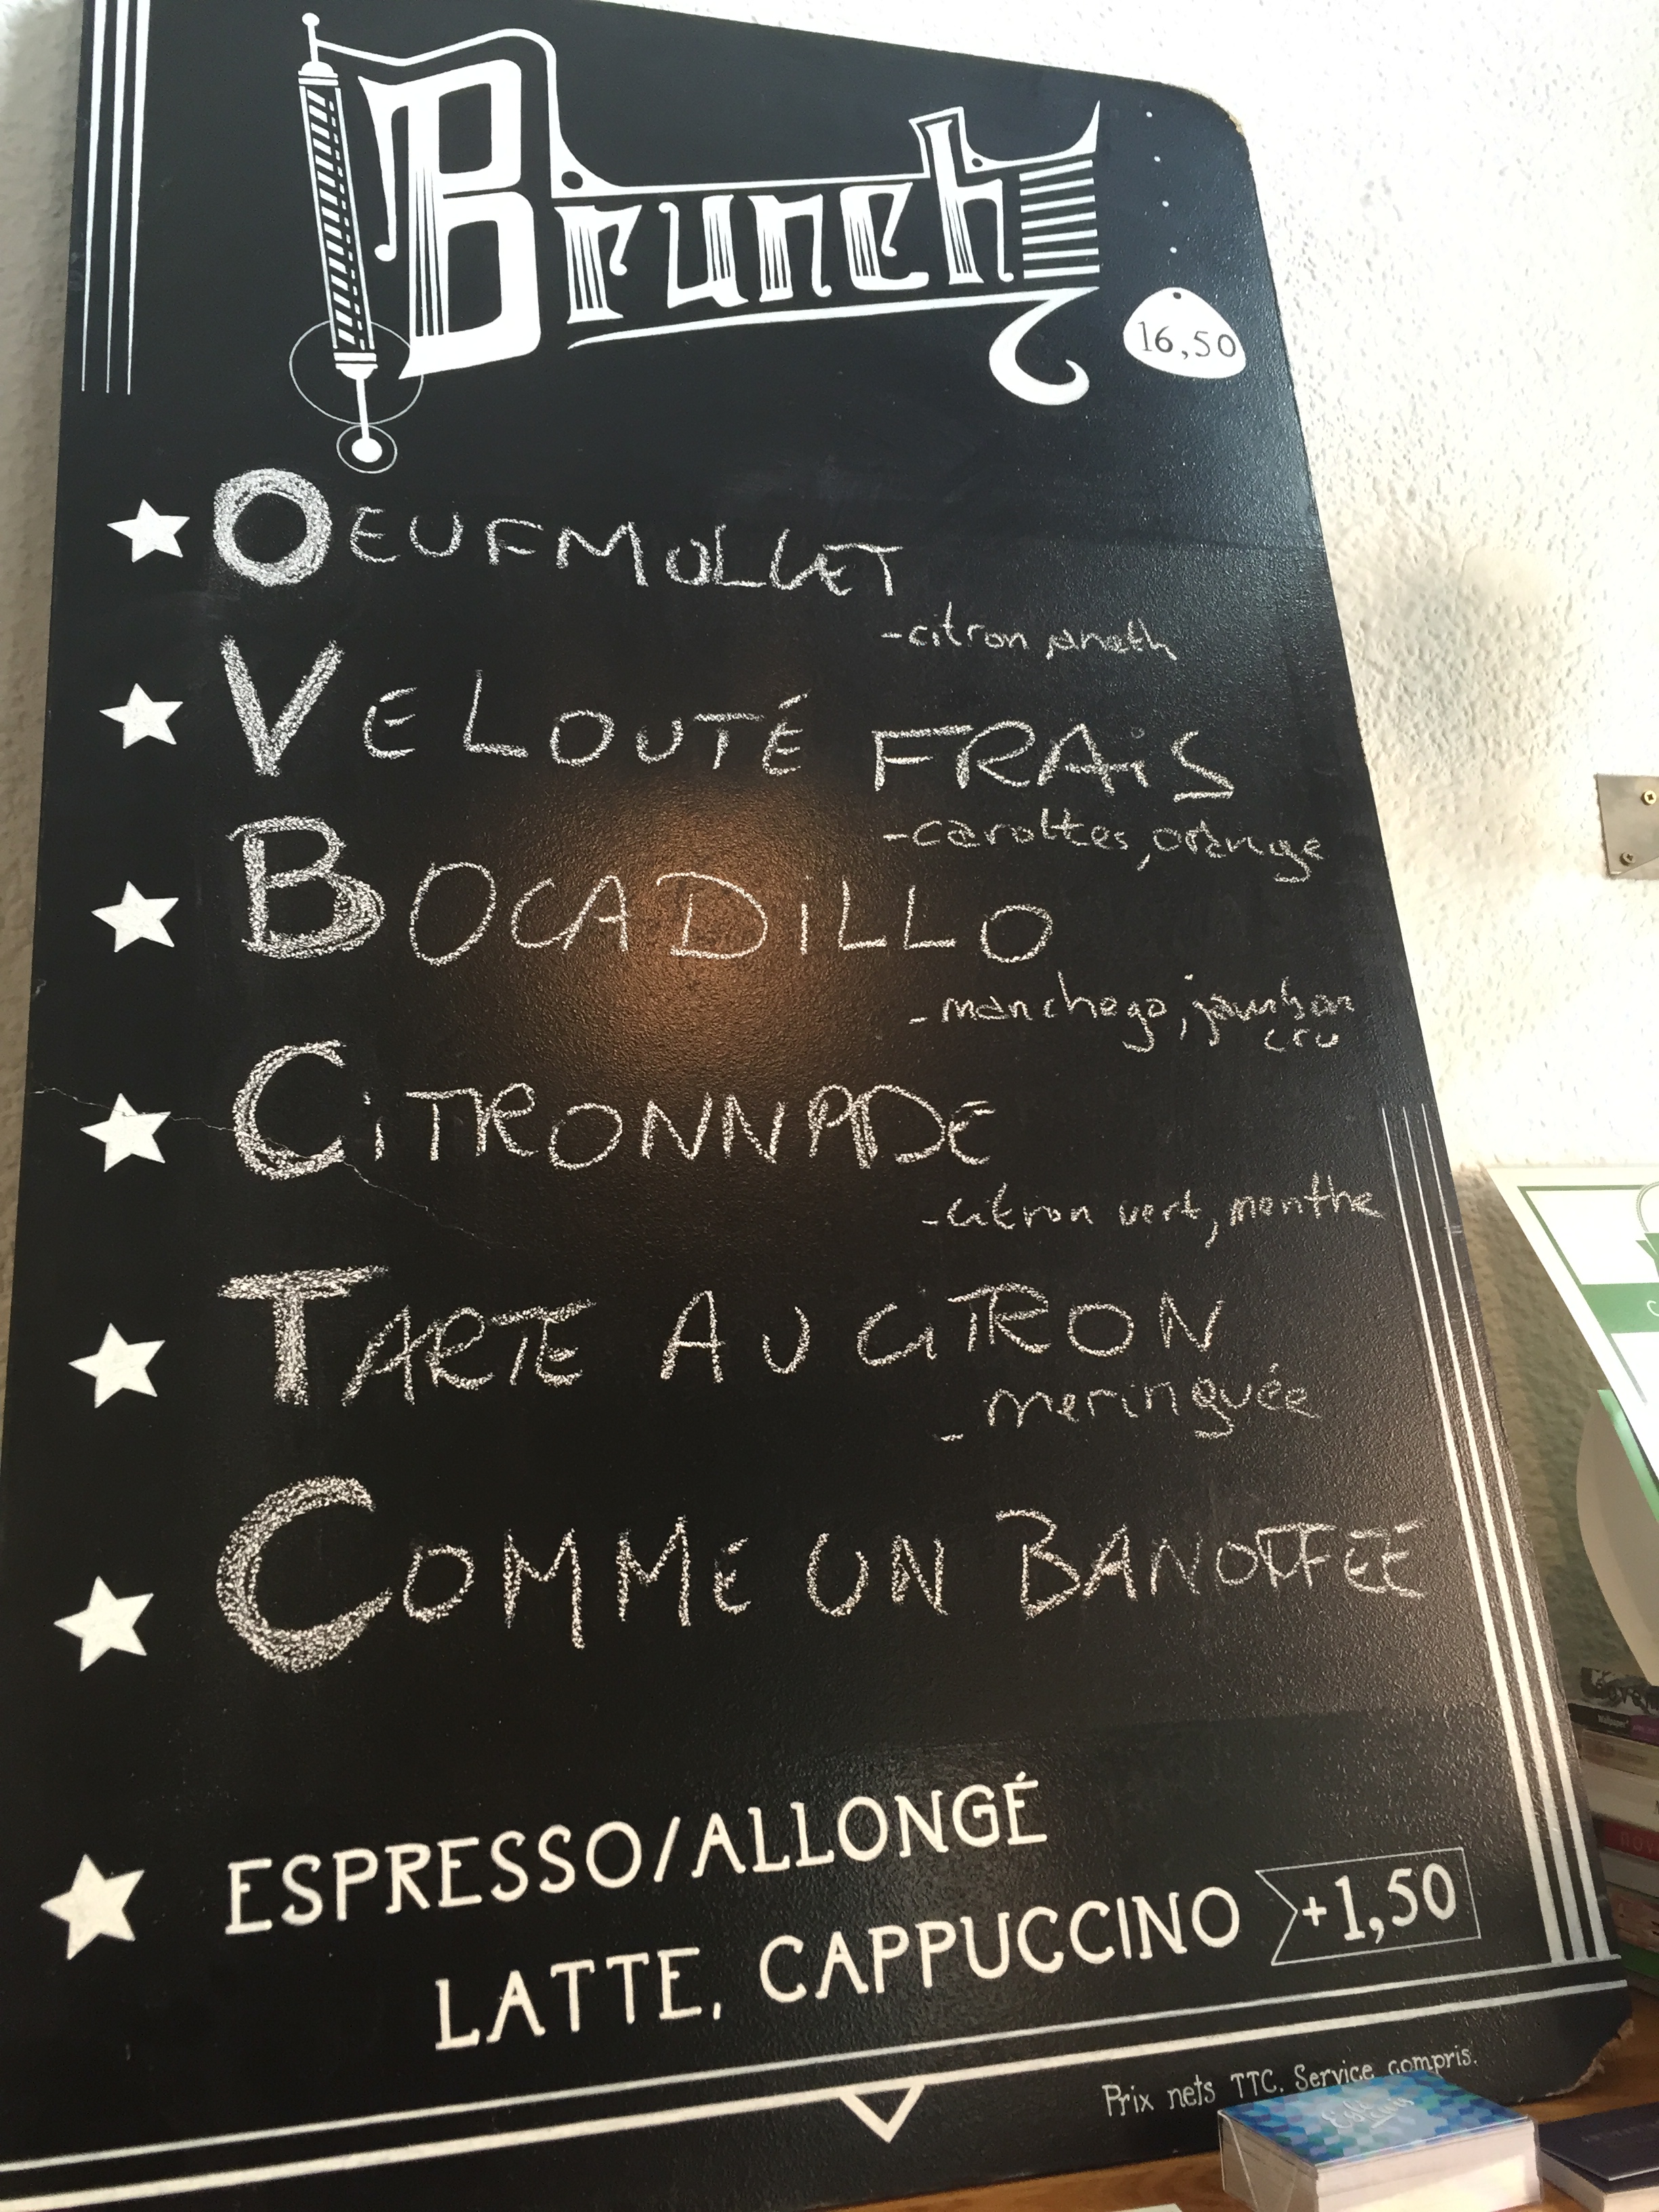 Brunch
16,50
OEUF MOLLET
-citron aneth
VELOUTÉ FRAIS
-carottes, orange
BOCADILLO
- manchego, jambon
cru
CITRONNADE
-citron vert, menthe
TARTE AU CITRON
- meringuée
COMME UN BANOFFEE
ESPRESSO/ALLONGÉ
LATTE, CAPPUCCINO +1,50
Prix nets TTC. Service compris.